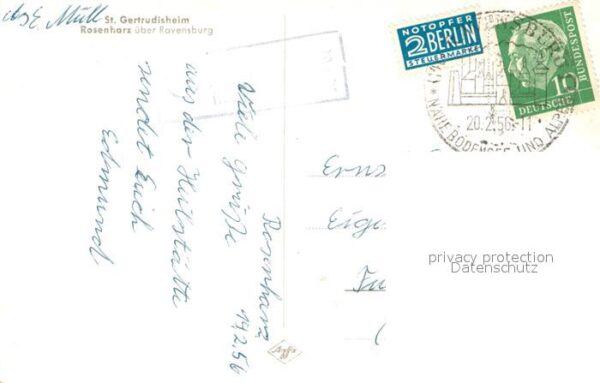 St. Gertrudisheim
Rosenharz über Ravensburg
Rosenharz
17.2.56
Viele Grüße
aus der Heilstätte
sendet Euch
Edmund
NOTOPFER
2 BERLIN
STEUERMARKE
10
DEUTSCHE
BUNDESPOST
20.2.56.-11
NAHE BODENSEE UND ALPEN
Erns
Eige
privacy protection
Datenschutz
Agfa